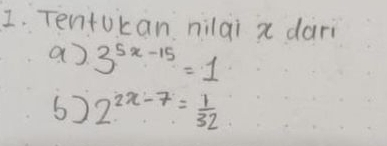 1. Tentukan nilai x dari
a) 3^{5x-15} = 1
b) 2^{2x-7} = \frac{1}{32}